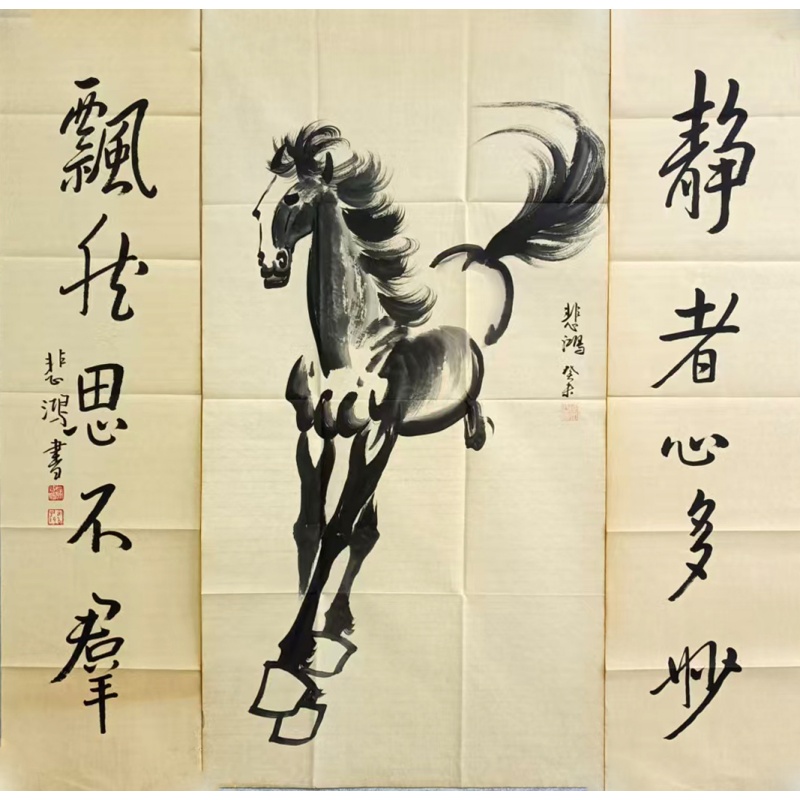 静者心多妙
悲鸿 癸未
飘然思不羣
悲鸿書